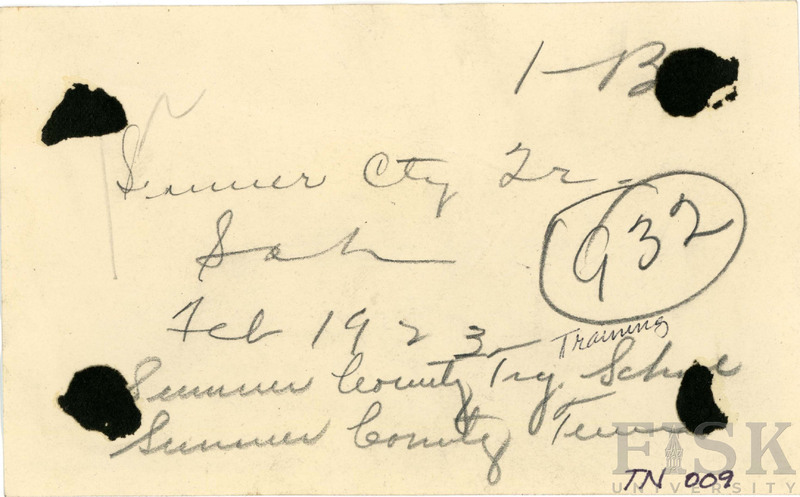 1-B
Sumner Cty Tr.
Sch
932
Feb 1923
Training
Sumner County Trg. School
Sumner County Tenn
FISK
UNIVERSITY
TN 009